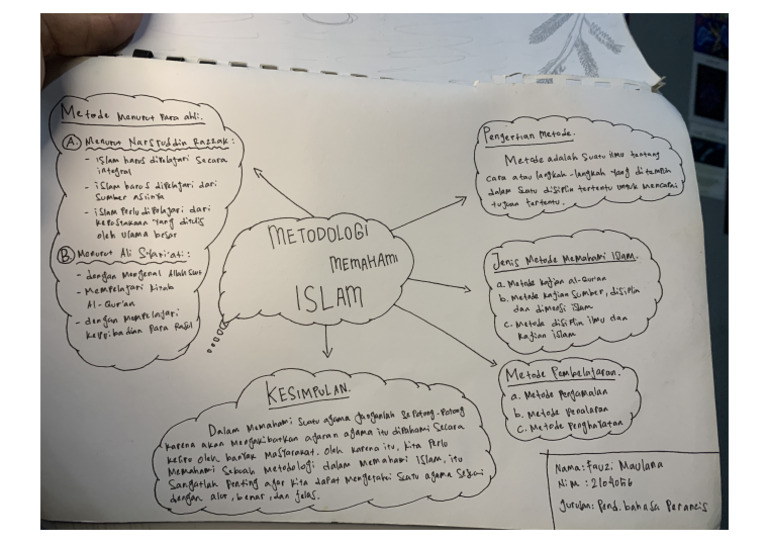 METODOLOGI
MEMAHAMI
ISLAM
Metode Menurut Para ahli.
A. Menurut Nasruddin Razzak:
- Islam harus dipelajari secara
integral
- islam harus dipelajari dari
sumber aslinya
- islam Perlu dipelajari dari
kepustakaan yang ditulis
oleh ulama besar
B. Menurut Ali Syari'ati:
- dengan Mengenal Allah Swt
- Mempelajari Kitab
Al-Qur'an
- dengan Mempelajari
kepribadian Para Rasul
Pengertian Metode.
Metode adalah Suatu ilmu tentang
cara atau langkah-langkah yang ditempuh
dalam Suatu disiplin tertentu untuk Mencapai
tujuan tertentu.
Jenis Metode Memahami Islam.
a. Metode kajian al-Qur'an
b. Metode kajian Sumber, disiplin
dan dimensi islam
c. Metode disiplin ilmu dan
kajian islam
Metode Pembelajaran.
a. Metode Pengamalan
b. Metode Penalaran
c. Metode Penghayatan
KESIMPULAN.
Dalam Memahami Suatu agama Janganlah Sepotong-Potong
karena akan Mengakibatkan ajaran agama itu dipahami Secara
keliru oleh banyak Masyarakat. Oleh karena itu, kita Perlu
Memahami Sebuah Metodologi dalam Memahami Islam, itu
Sangatlah Penting agar kita dapat Mengetahui Suatu agama Sesuai
dengan alur, benar, dan jelas.
Nama: Fauzi Maulana
Nim: 2104056
Jurusan: Pend. bahasa Perancis